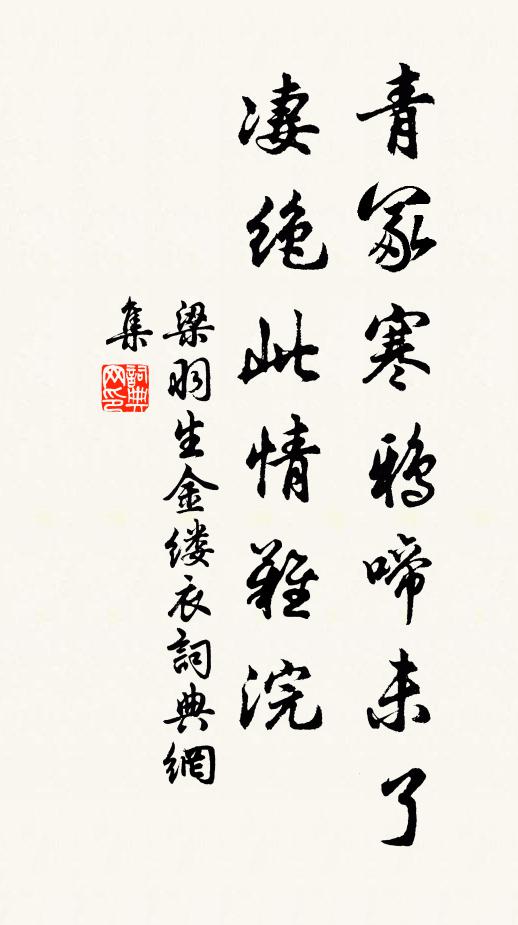 青冢寒鸦啼未了
凄绝此情難浣
梁羽生金缕衣詞典網
集
詞典
网印